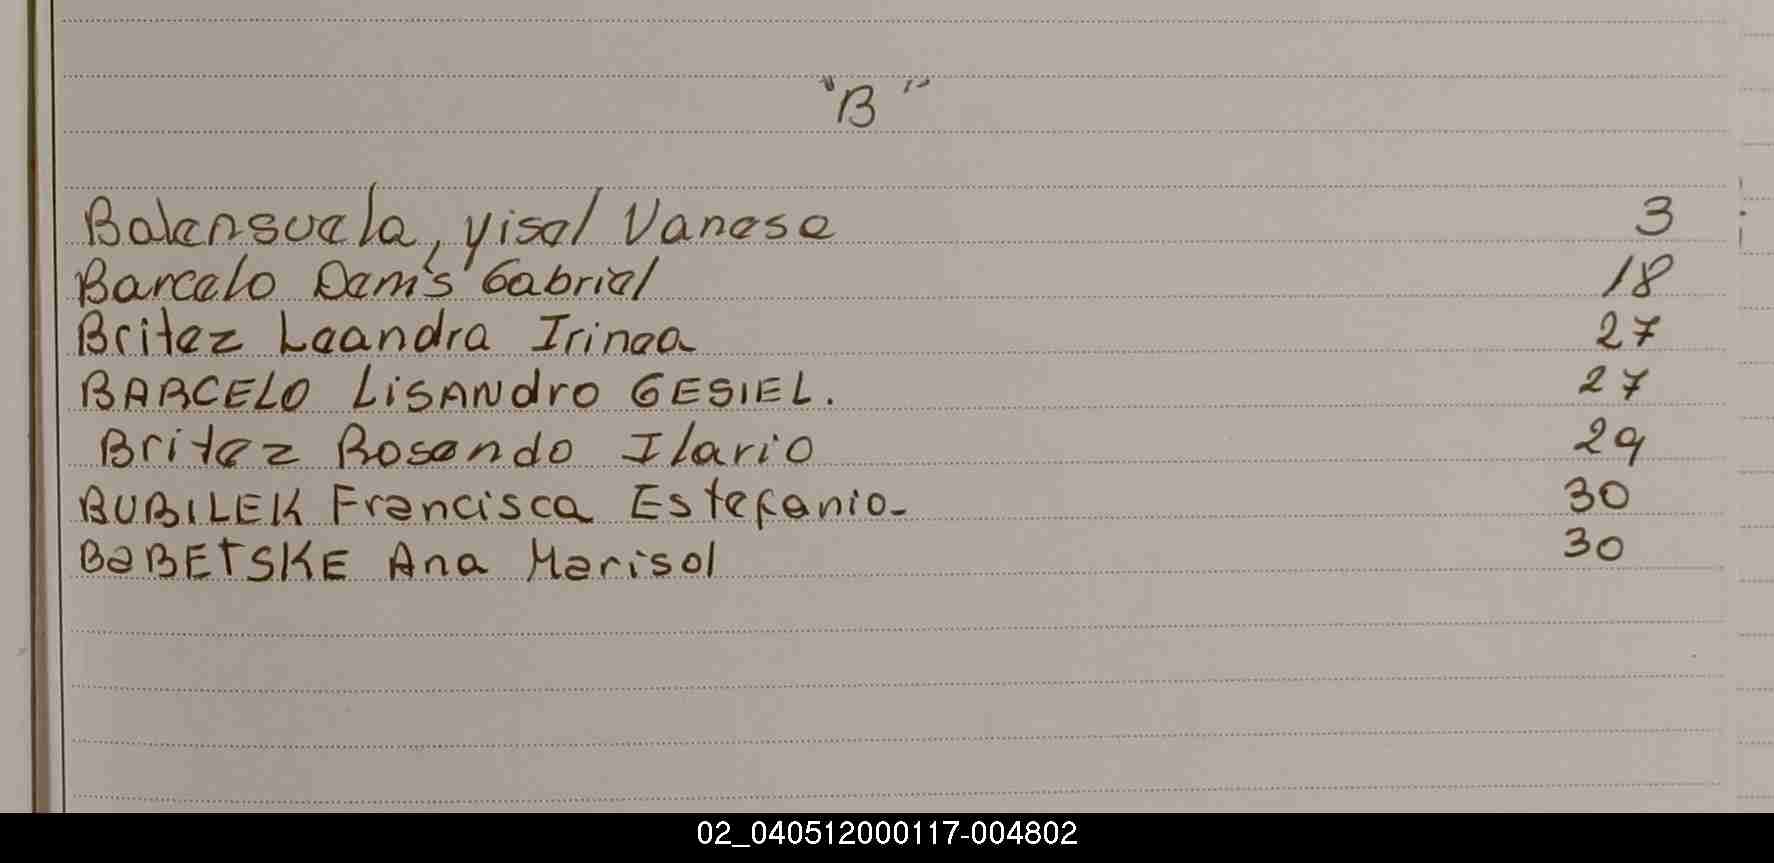 "B"
Balensuela, Yisel Vanesa 3
Barcelo Denis Gabriel 18
Britez Leandra Irinea 27
BARCELO LiSANdro GESIEL. 27
Britez Rosendo Ilario 29
BUBILEK Francisca Estefania- 30
BaBETSKE Ana Marisol 30
02_040512000117-004802